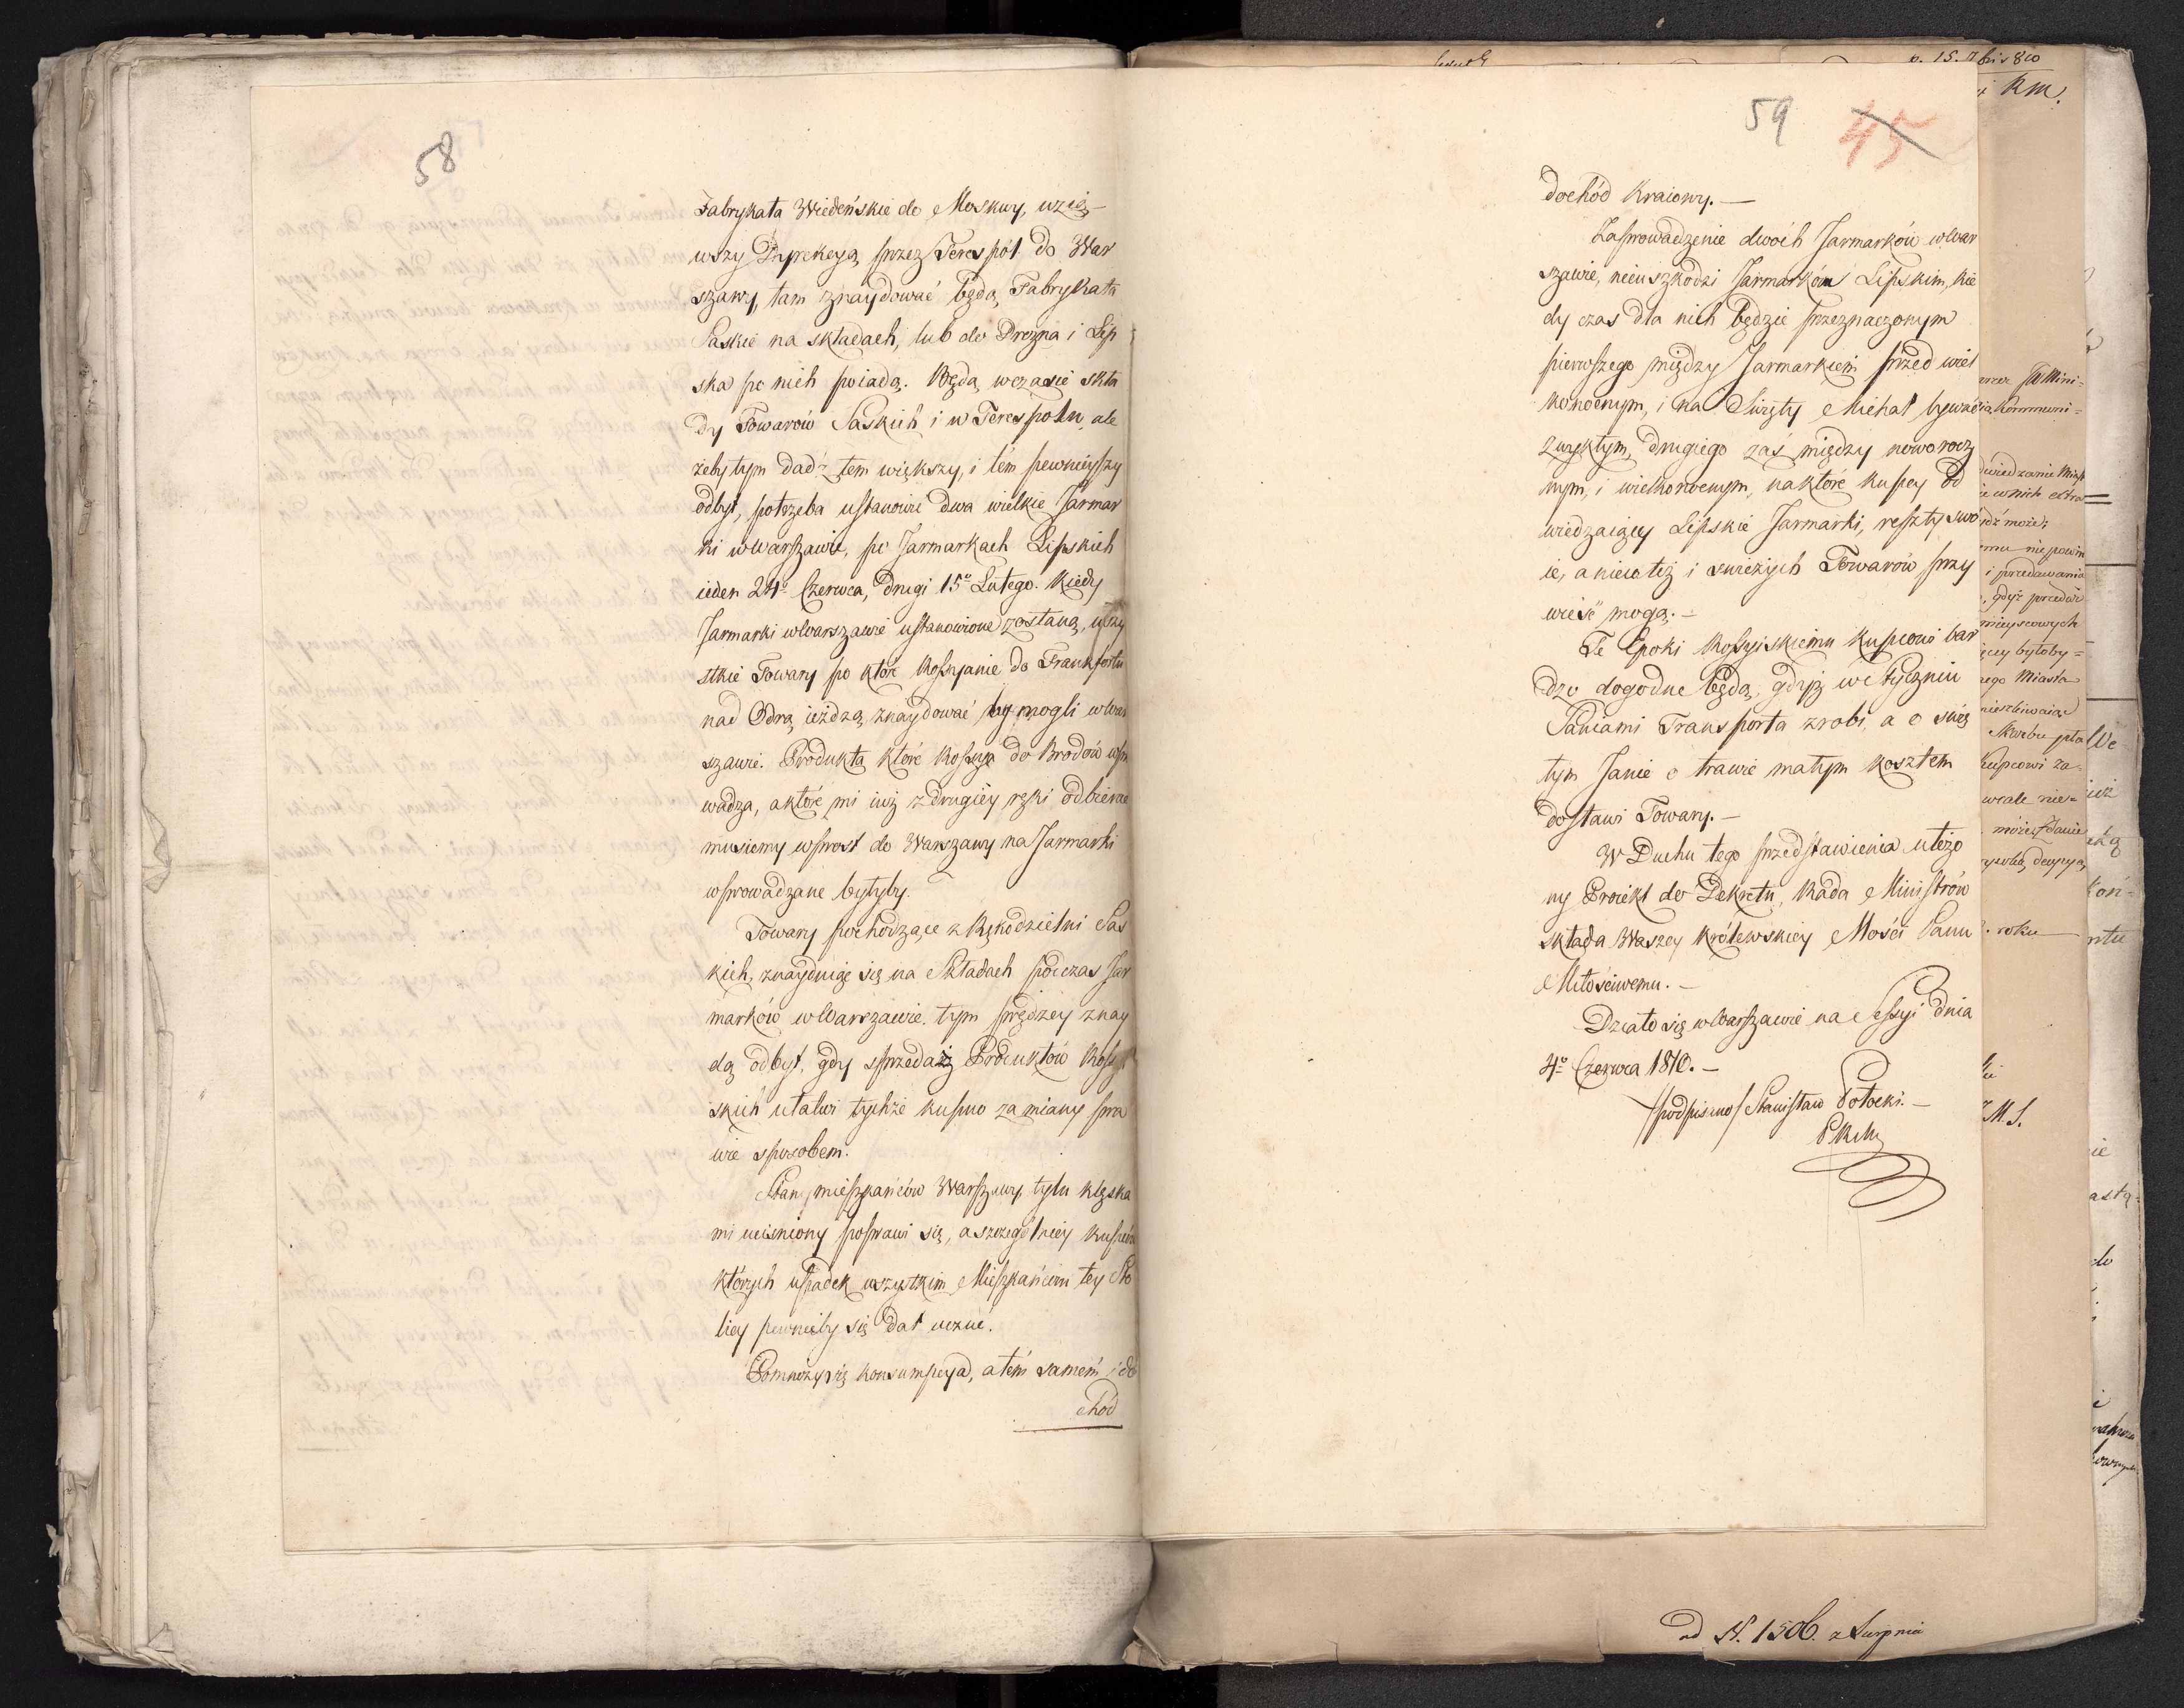 58
Fabrykata Wiedeńskie do Moskwy, wzią-
wszy Dyrekcyą przez Terespól do War
szawy, tam znaydować będą, Fabrykata
Saskie na składach, lub do Drezna i Lip
ska po nich poiadą. Będą wczasie skła
dy Towarów Saskich i w Terespolu, ale
żeby tym dadź tem większy, i tém pewnieyszy
odbyt, potrzeba ustanowić dwa wielkie Jarmar
ki w Warszawie, po Jarmarkach Lipskich
ieden 24o Czerwca, drugi 15o Lutego. Kiedy
Jarmarki w Warszawie ustanowione zostaną, wszy
stkie Towary po które Rossyanie do Frankfortu
nad Odrą ieżdzą, znaydować by mogli w War
szawie. Produkta które Rossya do Brodów wpro
wadza, a które mi iuż z drugiéy ręki odbierać
musiemy wprost do Warszawy na Jarmarki
wprowadzane byłyby.
Towary pochodzące z Rękodzielni Sas
kich, znayduiące się na Składach podczas Jar
marków w Warszawie, tym prędzey znay
dą odbyt, gdy sprzedaż Produktów Rossyi
skich ułatwi tychże kupno zamiany pra
wie sposobem.
Stan mieszkańców Warszawy tylu klęska
mi uciśniony poprawi się, a szczególniéy kupców
których upadek wszystkim Mieszkańcom tey Sto
licy pewnieby się dał uczuć.
Pomnoży się konsumpcya, a tém samém i do
chód
59 45
dochód Kraiowy.—
Zaprowadzenie dwóch Jarmarków w War
szawie, nieuszkodzi Jarmarkóm Lipskim, kie
dy czas dla nich będzie przeznaczonym
pierwszego między Jarmarkiem przed wiel
konocnym, i na Święty Michał bywać
zwykłym, drugiego zaś między noworocz
nym, i wielkonocnym, na które kupcy od
wiedzaiący Lipskie Jarmarki, reszty swo
ie, a nieco też i świeżych Towarów przy
wieść mogą.—
Te Epoki Rossyiskiemu kupcowi bar
dzo dogodne będą, gdyż w Styczniu
Saniami Transporta zrobi, a o Świę
tym Janie o trawie małym kosztem
dostawi Towary.—
W Duchu tego przedstawienia ułożo
ny Proiekt do Dekretu, Rada Ministrów
składa Waszey Królewskiey Mości Panu
Miłościwemu.—
Działo się w Warszawie na Sessyi dnia
4o Czerwca 1810.—
/podpisano/ Stanisław Potocki.—
P.R.M.
p. 15. 7bris 810
Km.
Mini=
Kommuni=
wiedzanie Miast
w nich extra
dź może;
nie powin
i przedawania
gdyż przedaż
mieyscowych
byłoby=
Miasta
Skarbu pła
kupcowi za=
wcale nie=
roku
M. S.
od N. 1506. z Sierpnia